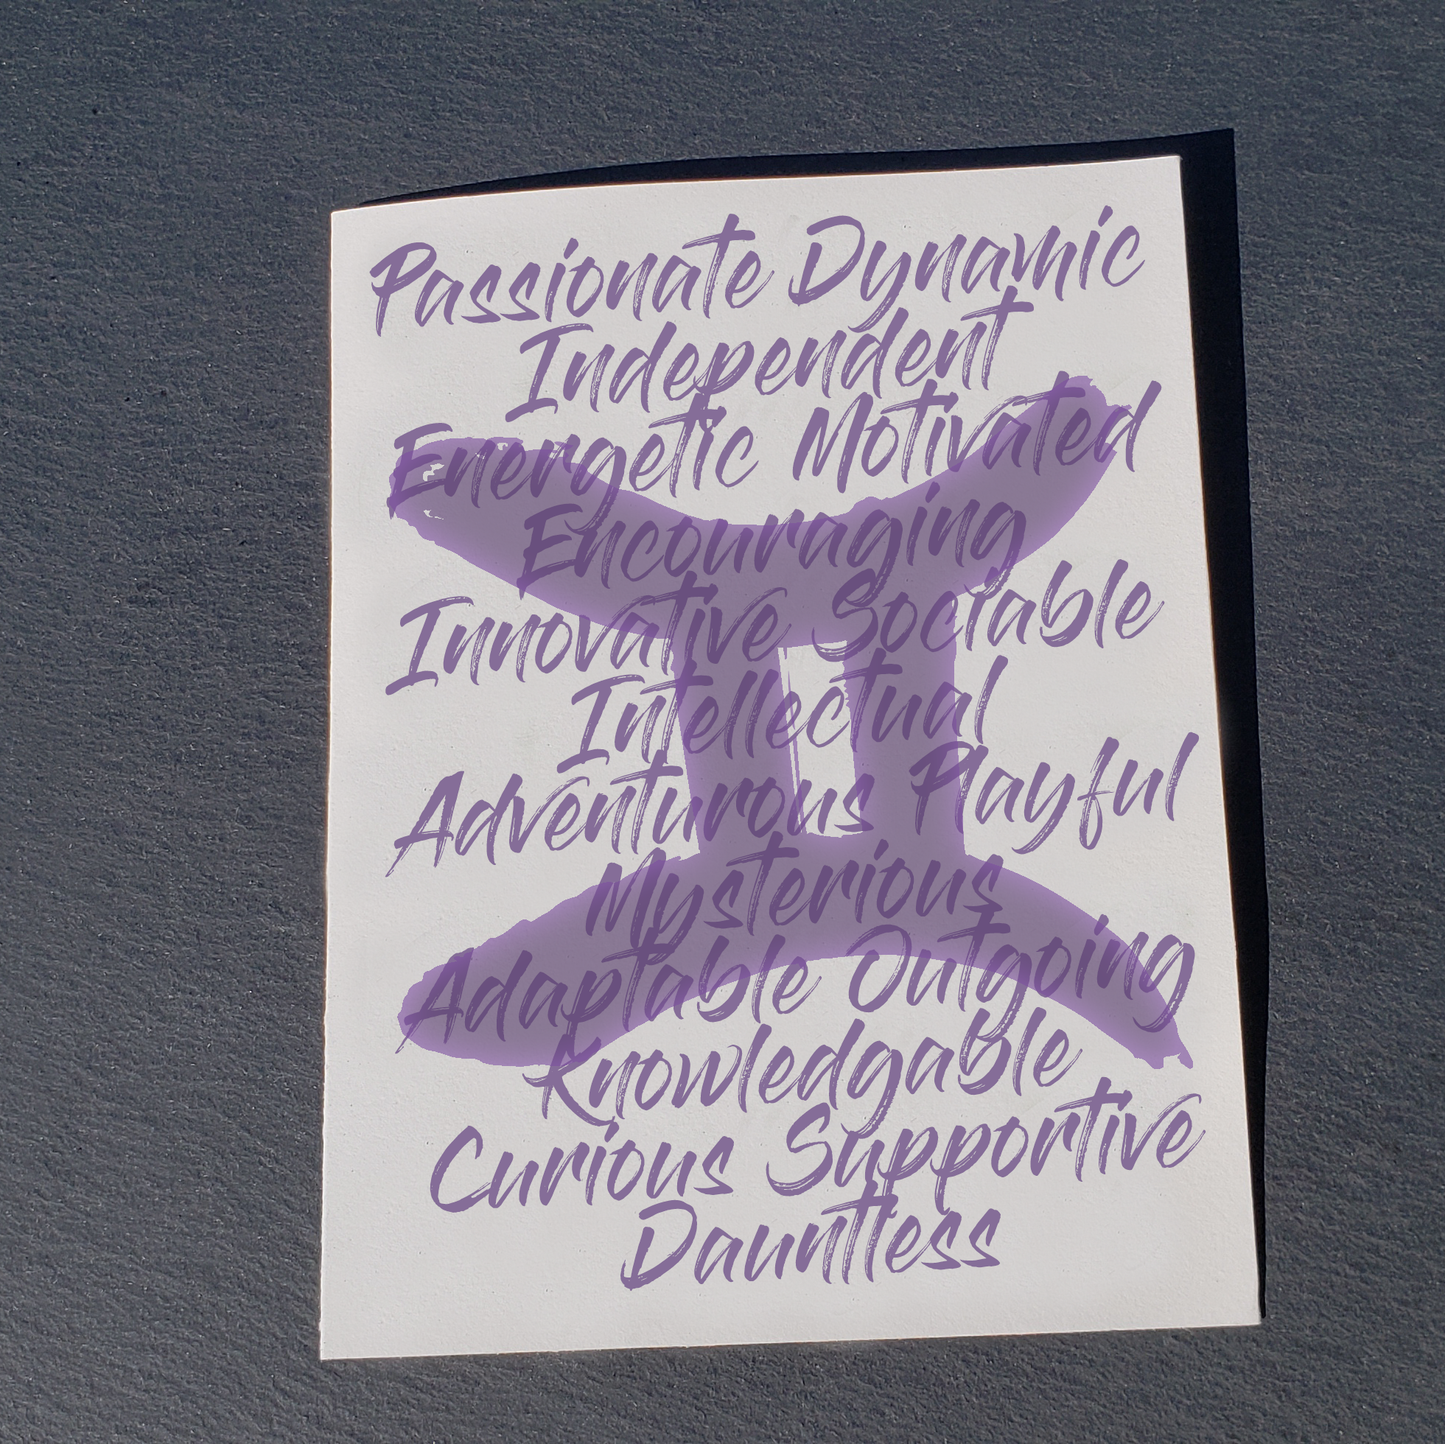 Passionate Dynamic
Independent
Energetic Motivated
Encouraging
Innovative Sociable
Intellectual
Adventurous Playful
Mysterious
Adaptable Outgoing
Knowledgable
Curious Supportive
Dauntless